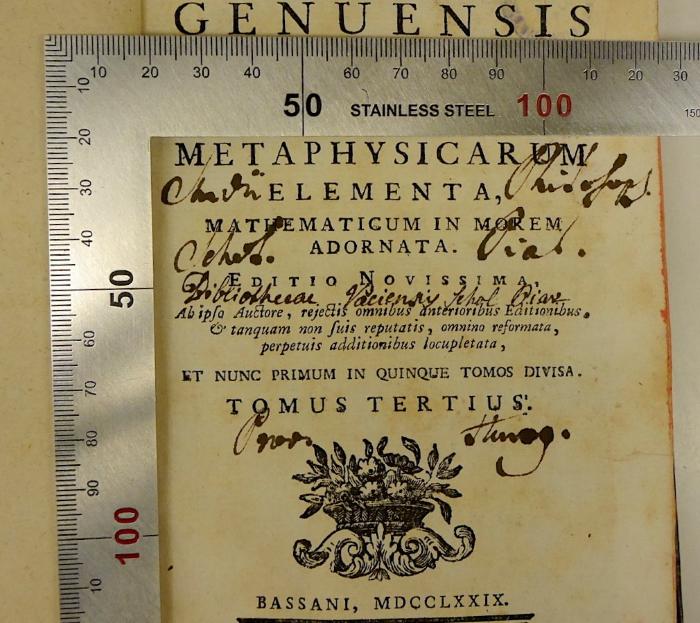 GENUENSIS
10 20 30 40 50 60 70 80 90 100 10 20 30
STAINLESS STEEL
150
10 20 30 40 50 60 70 80 90 100 10
METAPHYSICARUM
Studii ELEMENTA, Philosoph.
MATHEMATICUM IN MOREM
Schol. ADORNATA. Piar.
EDITIO NOVISSIMA,
Bibliothecae Vaciensis Schol Piar
Ab ipso Auctore, rejectis omnibus anterioribus Editionibus,
& tanquam non suis reputatis, omnino reformata,
perpetuis additionibus locupletata,
ET NUNC PRIMUM IN QUINQUE TOMOS DIVISA.
TOMUS TERTIUS.
Prov. Hung.
BASSANI, MDCCLXXIX.